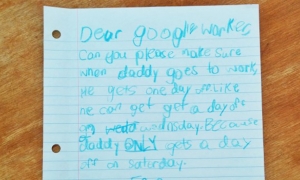 Dear google worker,
Can you please make sure
when daddy goes to work,
He gets one day off. Like
he can get get a day off
on wedn wednsday. Because
daddy ONLY gets a day
off on saturday.